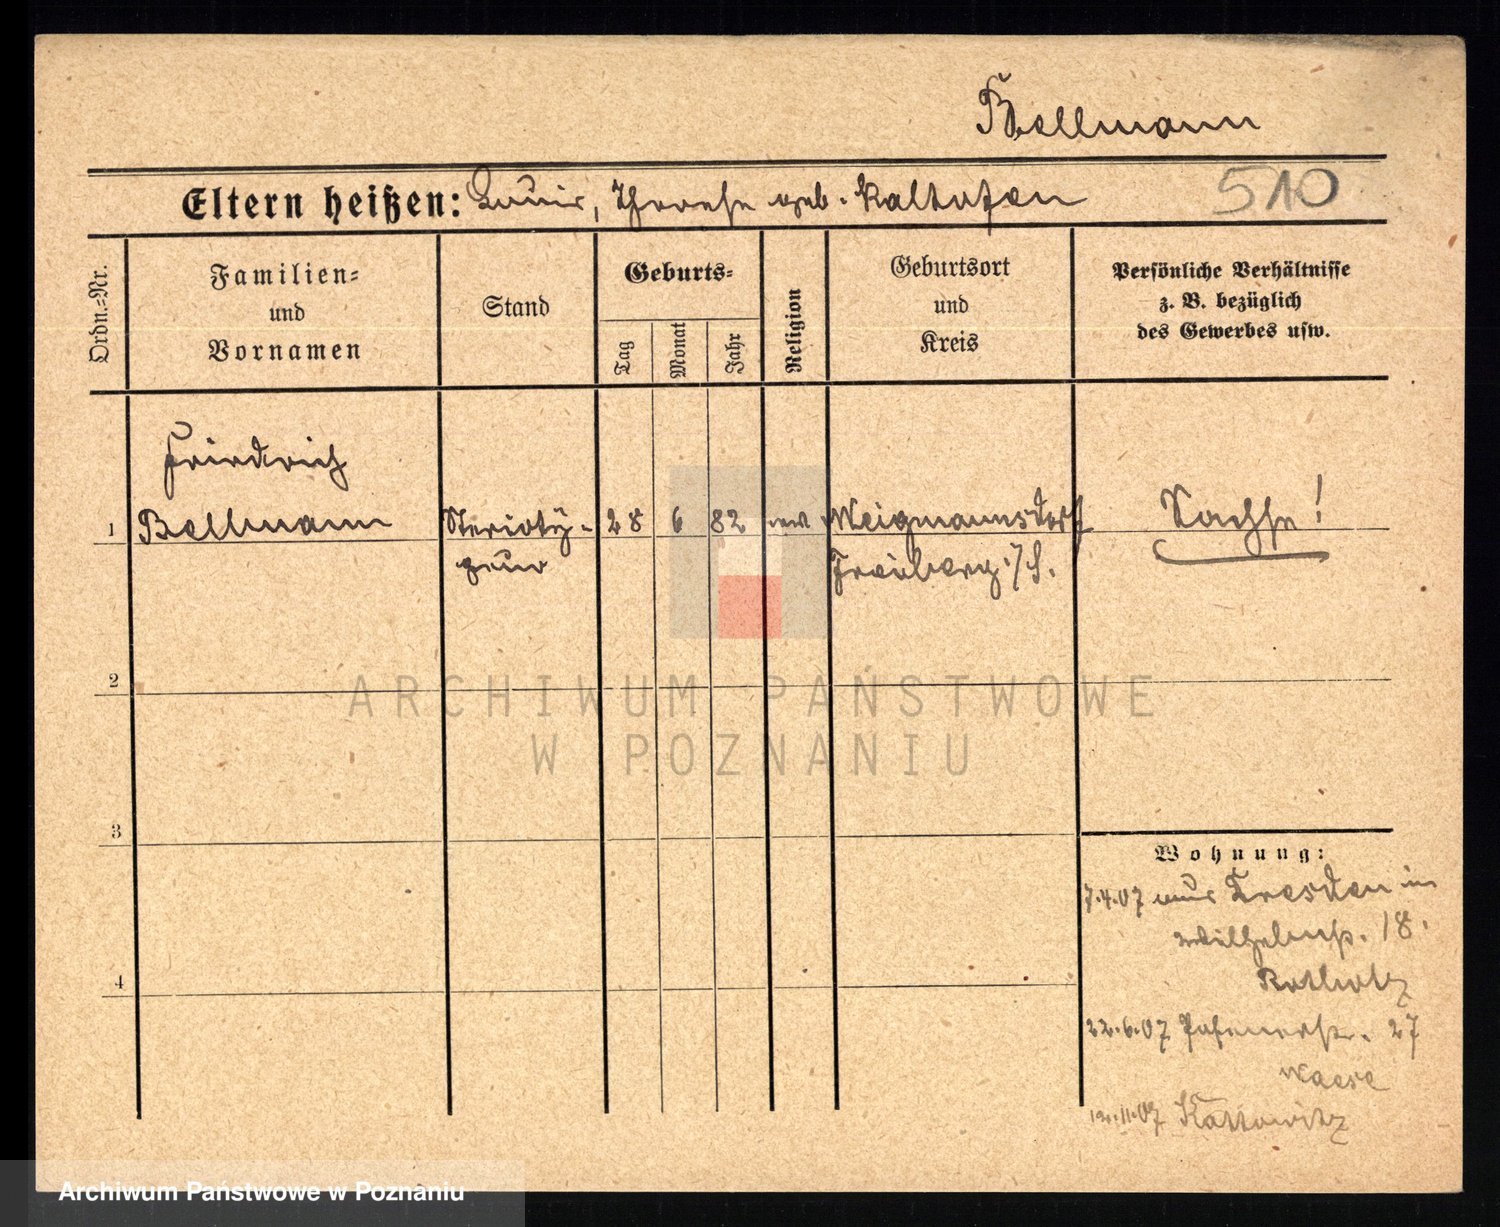 Bellmann
Eltern heißen: Louis, Therese geb. Kaltofen 510
Ordn.-Nr.
Familien-
und
Vornamen
Stand
Geburts-
Tag
Monat
Jahr
Religion
Geburtsort
und
Kreis
Persönliche Verhältnisse
z. B. bezüglich
des Gewerbes usw.
Friedrich
1 Bellmann Sterioty- 28 6 82 ev. Weigmannsdorf Sachse!
peur Freiberg i/S.
2
ARCHIWUM PAŃSTWOWE
W POZNANIU
3
Wohnung:
7.4.07 aus Dresden in
Wilhelmstr. 18.
4
22.6.07 Posenerstr. 27
12.11.07 Kattowitz
Archiwum Państwowe w Poznaniu